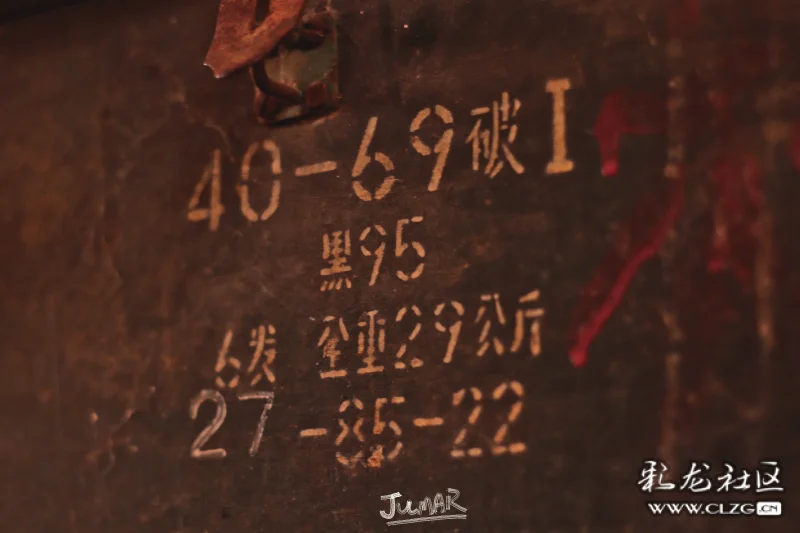 40-69破I
黑95
6发 全重29公斤
27-85-22
JUMAR
彩龙社区
WWW.CLZG.CN